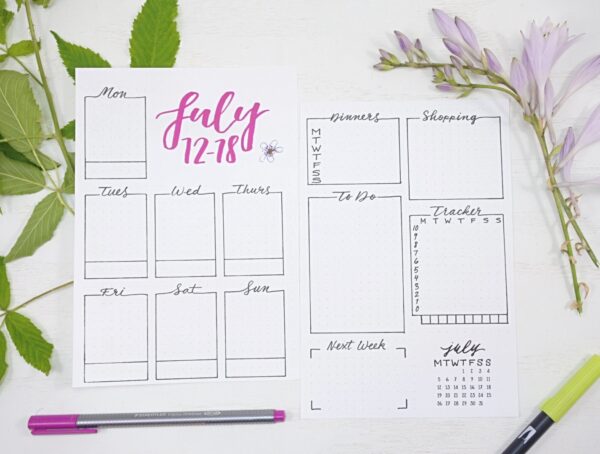 Mon
July
12-18
Tues Wed Thurs
Fri Sat Sun
Dinners
M
T
W
T
F
S
S
Shopping
To Do
Tracker
M T W T F S S
10
9
8
7
6
5
4
3
2
1
0
Next Week
july
M T W T F S S
1 2 3 4
5 6 7 8 9 10 11
12 13 14 15 16 17 18
19 20 21 22 23 24 25
26 27 28 29 30 31